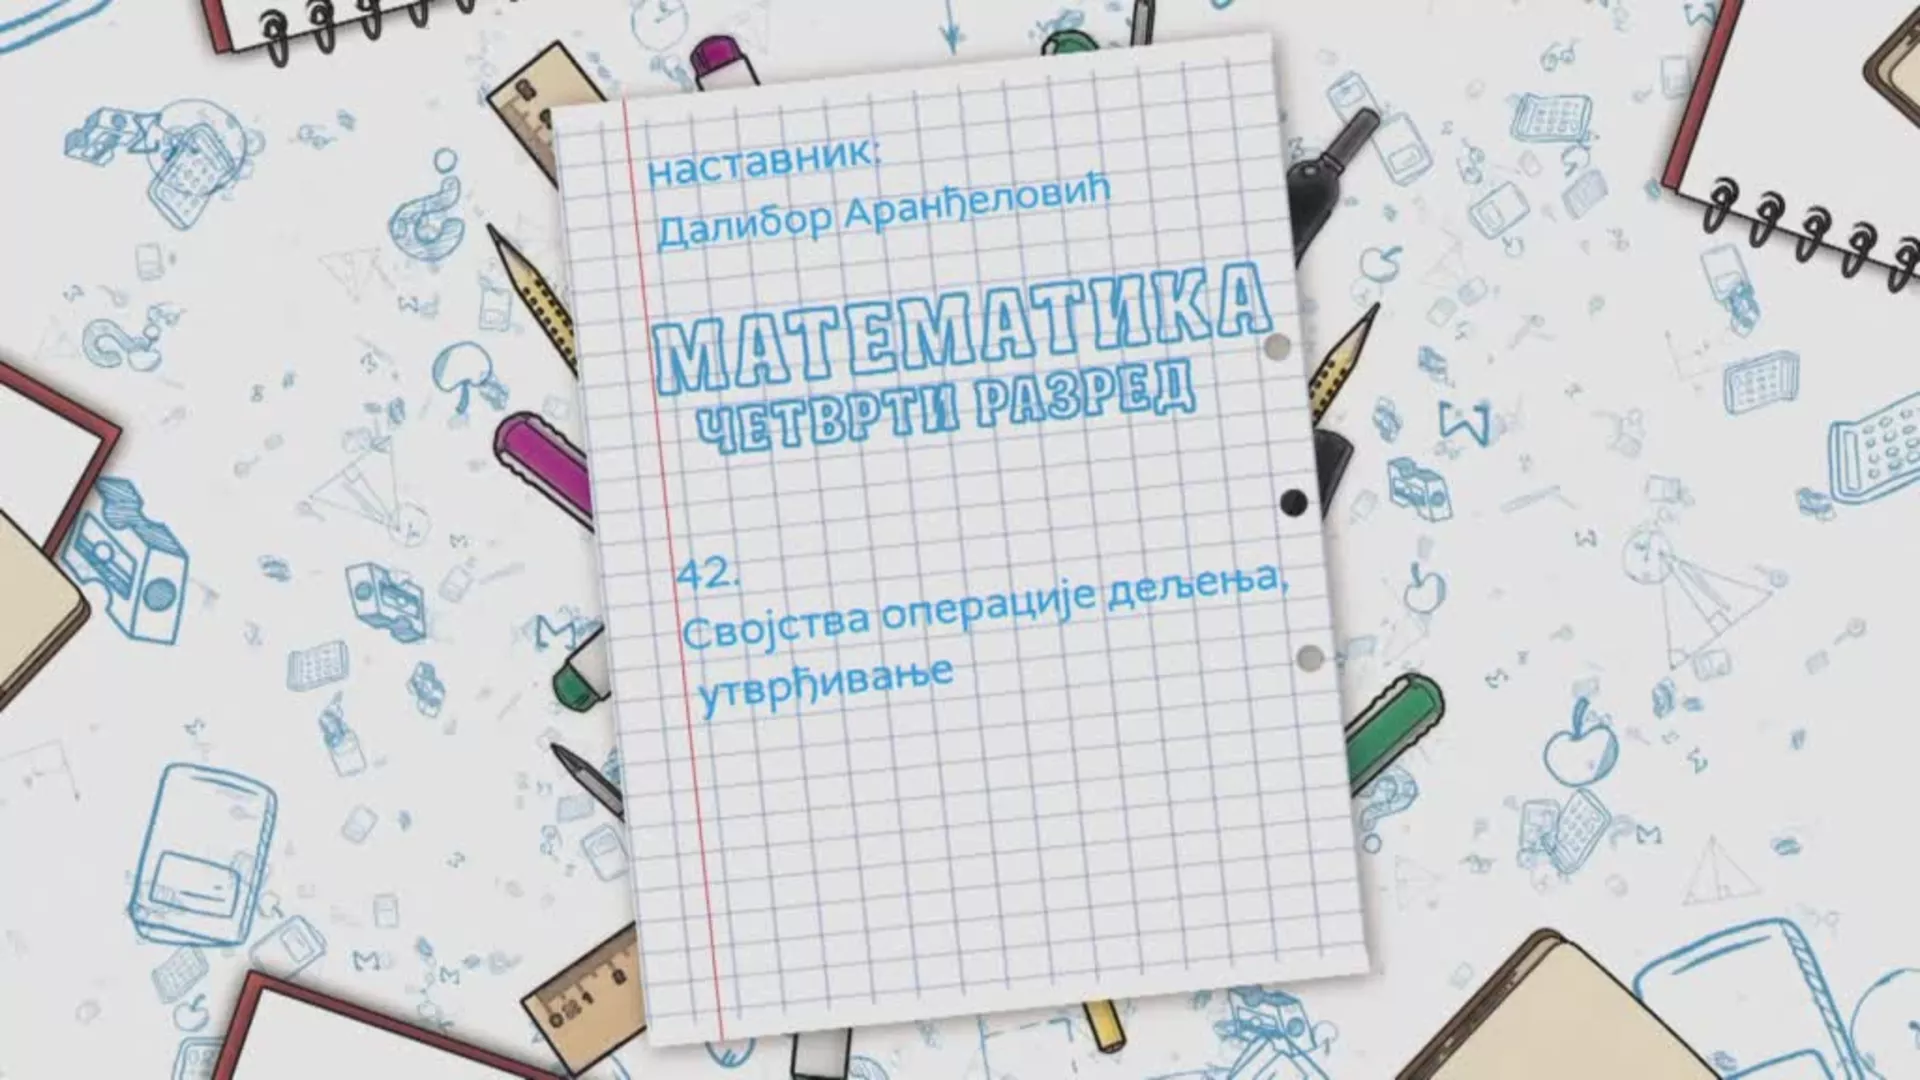 наставник:
Далибор Аранђеловић
МАТЕМАТИКА
ЧЕТВРТИ РАЗРЕД
42.
Својства операције дељења,
утврђивање